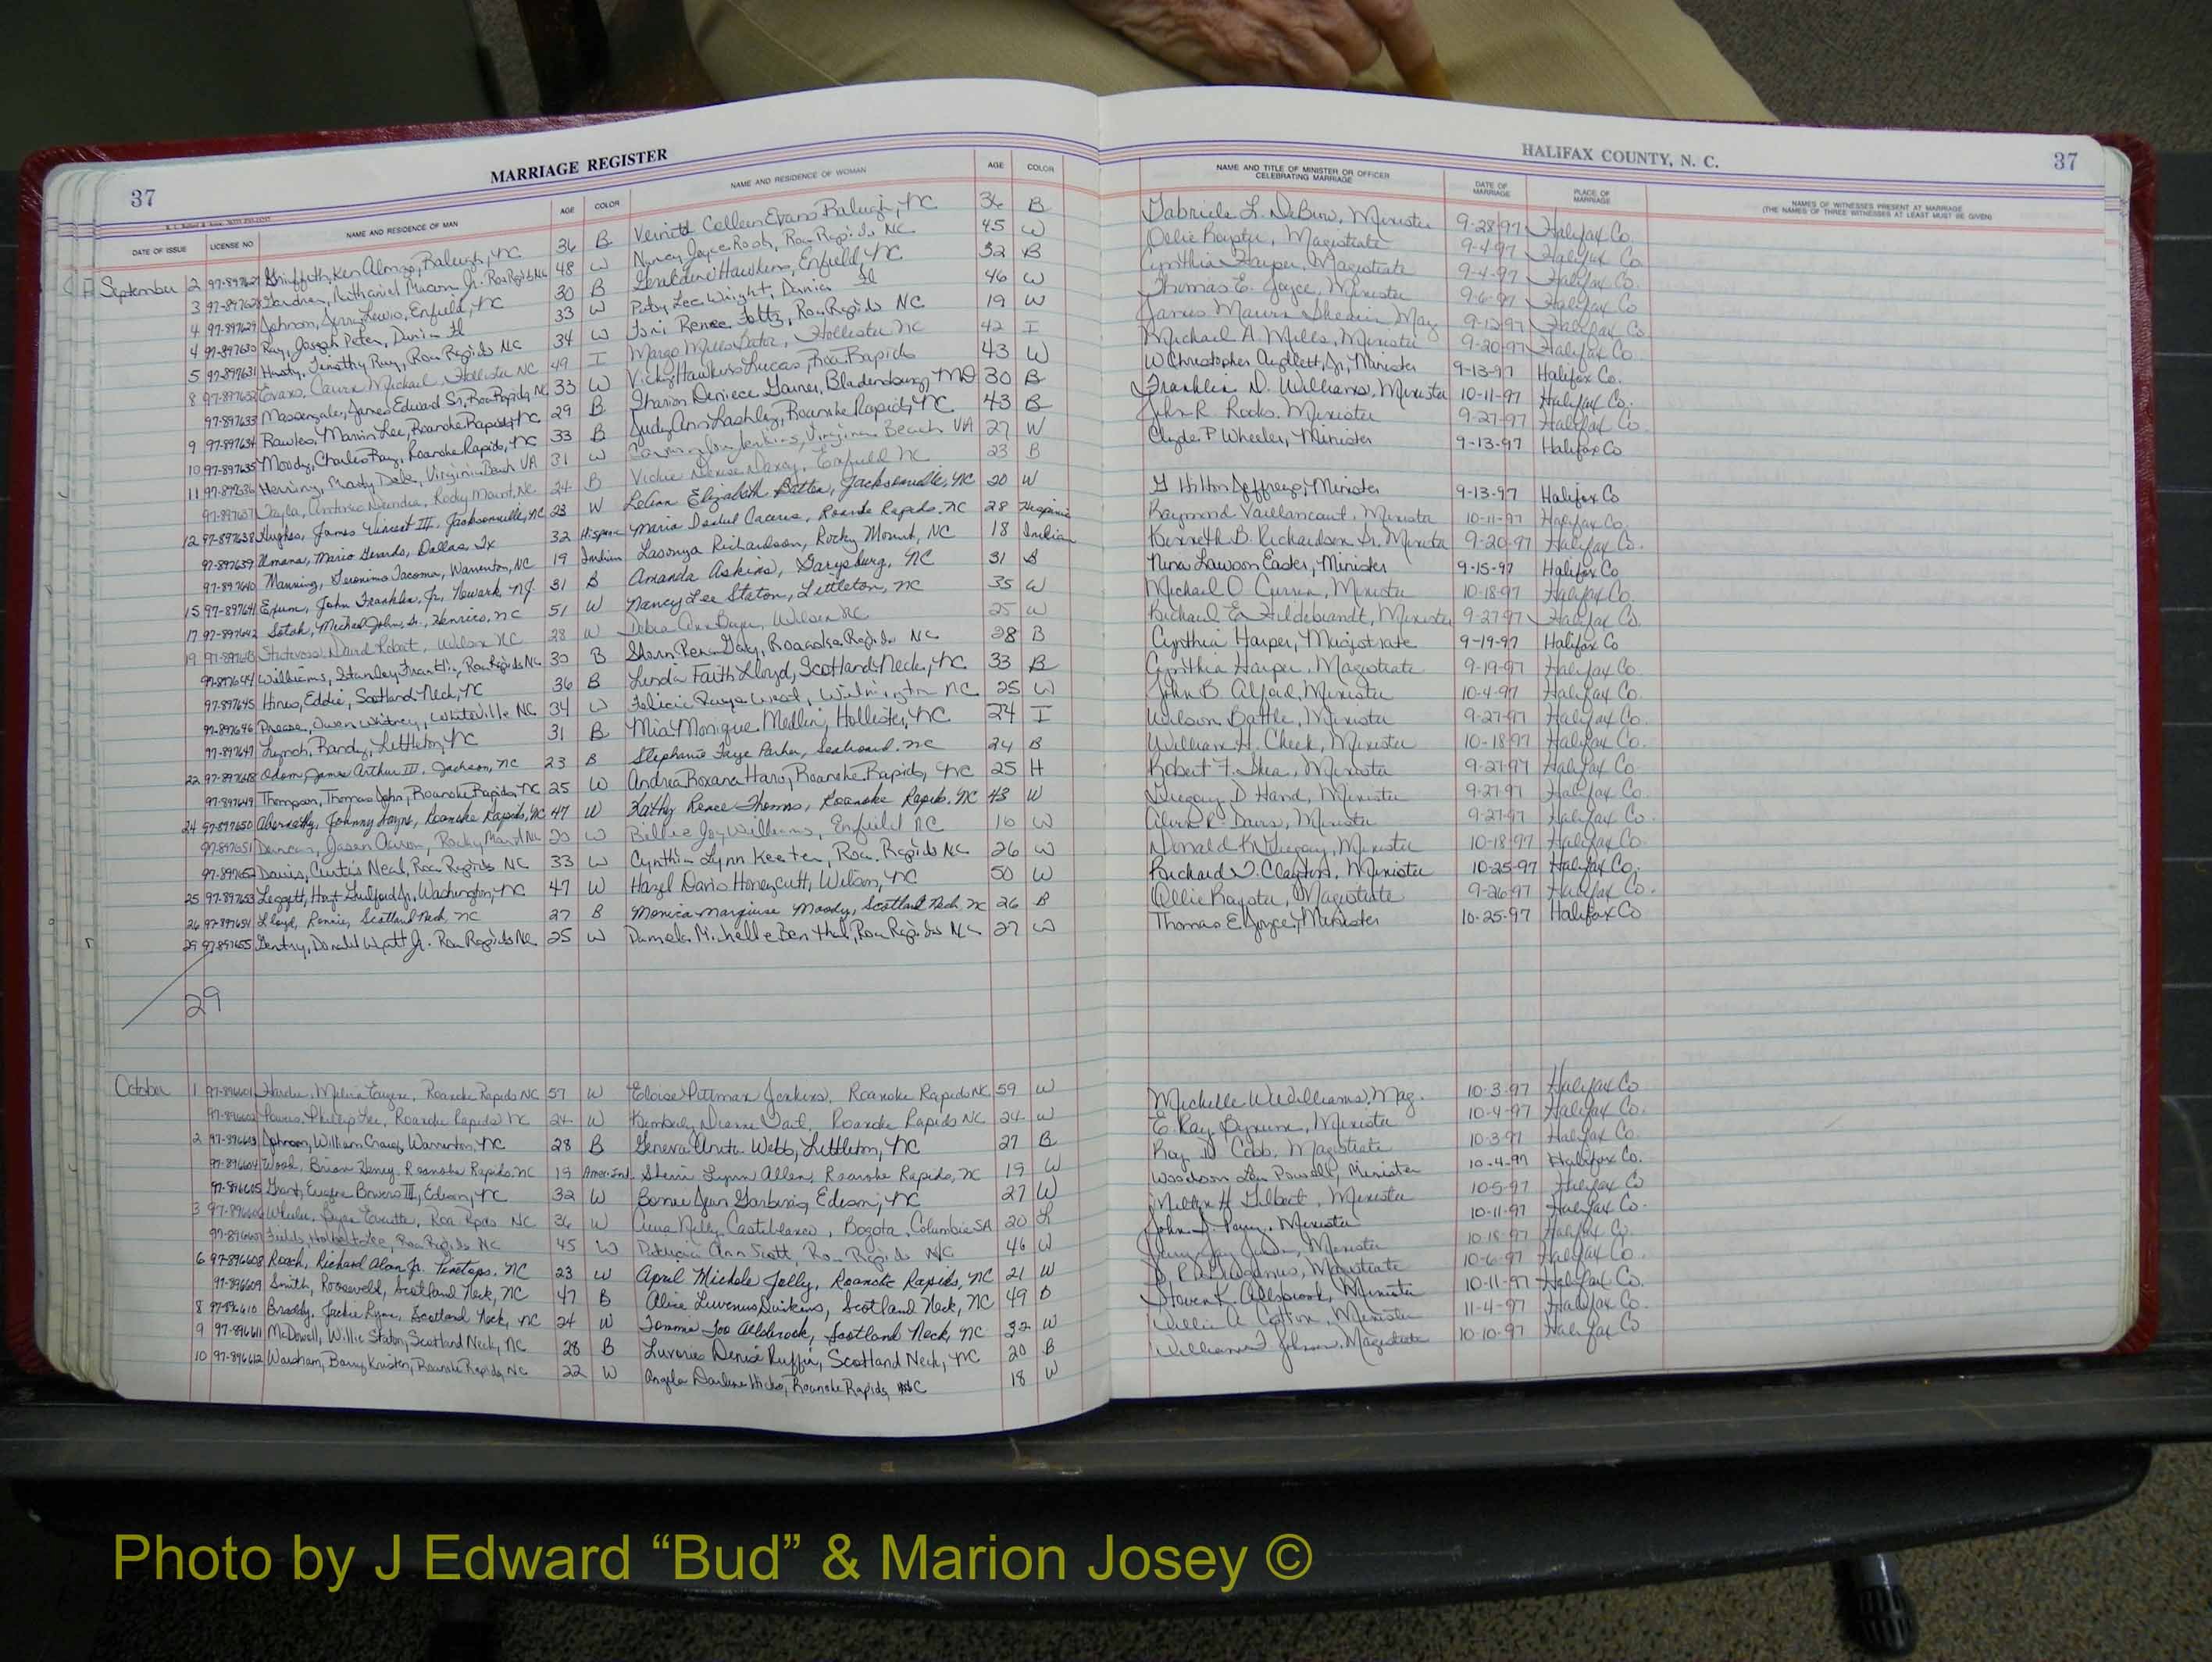 37 MARRIAGE REGISTER
HALIFAX COUNTY, N. C. 37
DATE OF ISSUE LICENSE NO NAME AND RESIDENCE OF MAN AGE COLOR NAME AND RESIDENCE OF WOMAN AGE COLOR NAME AND TITLE OF MINISTER OR OFFICER CELEBRATING MARRIAGE DATE OF MARRIAGE PLACE OF MARRIAGE NAMES OF WITNESSES PRESENT AT MARRIAGE (THE NAMES OF THREE WITNESSES AT LEAST MUST BE GIVEN)
September 2 97-897627 Griffeth, Ken Alonzo, Raleigh, NC 36 B Colleen Evans Raleigh, NC 36 B Gabriele L. DeBrew, Minister 9-28-97 Halifax Co.
3 97-897628 Gardner, Nathaniel Macon Jr. Roa Rapids NC 48 W Nancy Joyce Rook, Roa Rapids NC 45 W Ollie Royster, Magistrate 9-4-97 Halifax Co
4 97-897629 Johnson, Jerry Lewis, Enfield, NC 30 B Geraldine Hawkins, Enfield, NC 32 B Cynthia Harper, Magistrate 9-4-97 Halifax Co.
4 97-897630 Ray, Joseph Peter, Dania Fl 33 W Lee Wright, Dania Fl 46 W Thomas E. Joyce, Minister 9-6-97 Halifax Co
5 97-897631 Hasty, Timothy Ray, Roa Rapids NC 34 W Toni Renee Fultz, Roa Rapids NC 19 W James Mag 9-12-97 Halifax Co
8 97-897632 Evans, Michael, Hollister NC 49 I Margo Mills, Hollister NC 42 I Michael A. Mills, Minister 9-20-97 Halifax Co.
97-897633 Massengale, James Edward Sr, Roa Rapids, NC 33 W Vicky Hawkins Lucas, Roa Rapids 43 W W Christopher Aydlett, Jr, Minister 9-13-97 Halifax Co.
9 97-897634 Rawles, Marvin Lee, Roanoke Rapids, NC 29 B Sharon Deniece Gainer, Bladensburg, MD 30 B Franklin D. Williams, Minister 10-11-97 Halifax Co.
10 97-897635 Moody, Charles Ray, Roanoke Rapids, NC 33 B Judy Ann Lashley, Roanoke Rapids, NC 43 B John R. Rooks, Minister 9-27-97 Halifax Co.
11 97-897636 Herring, Marty Dale, Virginia Beach VA 31 W Jenkins, Virginia Beach VA 27 W Clyde P Wheeler, Minister 9-13-97 Halifax Co
97-897637 Rocky Mount, NC 24 B Vickie Denise Enfield NC 23 B
12 97-897638 Hughes, James Vincent III, Jacksonville, NC 23 W LeAnn Elizabeth Batten, Jacksonville, NC 20 W G Hilton Jeffreys, Minister 9-13-97 Halifax Co
97-897639 Umana, Mario Gerardo, Dallas, Tx 32 Hispanic Maria Caceres, Roanoke Rapids, NC 28 Hispanic Raymond Vaillancourt, Minister 10-11-97 Halifax Co.
97-897640 Manning, Geronimo Tacoma, Warrenton, NC 19 Indian Lasonya Richardson, Rocky Mount, NC 18 Indian Kenneth B. Richardson Sr. Minister 9-20-97 Halifax Co.
15 97-897641 Exum, John Franklin, Jr, Newark, NJ. 31 B Amanda Askins, Garysburg, NC 31 B Nina Lawson Easter, Minister 9-15-97 Halifax Co
17 97-897642 Sotak, Michael John, Sr., Henrico, NC 51 W Nancy Lee Staton, Littleton, NC 35 W Michael O. Curren, Minister 10-18-97 Halifax Co.
19 97-897643 David Robert, Wilson NC 28 W Debra Ann Wilson NC 25 W Richard E. Hildebrandt, Minister 9-27-97 Halifax Co.
97-897644 Williams, Stanley Franklin, Roa Rapids NC 30 B Daly, Roanoke Rapids NC 28 B Cynthia Harper, Magistrate 9-19-97 Halifax Co
97-897645 Hines, Eddie, Scotland Neck, NC 36 B Linda Faith Lloyd, Scotland Neck, NC 33 B Cynthia Harper, Magistrate 9-19-97 Halifax Co.
97-897646 Owen Whitney, Whiteville NC 34 W Felicia Wilmington NC 25 W John B. Alford, Minister 10-4-97 Halifax Co.
97-897647 Lynch, Randy, Littleton, NC 31 B Mia Monique Medlin, Hollister, NC 24 I Wilson Battle, Minister 9-27-97 Halifax Co.
22 97-897648 Odom, James Arthur III, Jackson, NC 23 B Stephanie Faye Parker, Seaboard, NC 24 B William H. Cheek, Minister 10-18-97 Halifax Co.
97-897649 Thompson, Thomas John, Roanoke Rapids, NC 25 W Andrea Roxana Haro, Roanoke Rapids, NC 25 H Robert F. Shea, Minister 9-27-97 Halifax Co
24 97-897650 Abernathy, Johnny Wayne, Roanoke Rapids, NC 47 W Kathy Renee Thomas, Roanoke Rapids, NC 43 W Gregory D Hand, Minister 9-27-97 Halifax Co.
97-897651 Duncan, Jason Aaron, Rocky Mount NC 20 W Billie Joy Williams, Enfield NC 16 W Alvin R. Davis, Minister 9-27-97 Halifax Co.
97-897652 Davis, Curtis Neal, Roa Rapids NC 33 W Cynthia Lynn Keeter, Roa. Rapids NC 26 W Donald K. Gregory, Minister 10-18-97 Halifax Co.
25 97-897653 Leggett, Hoyt Guilford Jr., Washington, NC 47 W Hazel Davis Honeycutt, Wilson, NC 50 W Richard D. Clayton, Minister 10-25-97 Halifax Co,
26 97-897654 Lloyd, Ronnie, Scotland Neck, NC 27 B Monica Moody, Scotland Neck, NC 26 B Ollie Royster, Magistrate 9-26-97 Halifax Co.
29 97-897655 Gentry, Donald Wyatt Jr. Roa Rapids NC 25 W Pamela Michelle Benthal, Roa Rapids NC 27 W Thomas E Joyce, Minister 10-25-97 Halifax Co
29
October 1 97-896601 Eugene, Roanoke Rapids NC 57 W Eloise Pittman Jenkins, Roanoke Rapids NC 59 W Michelle W. Williams, Mag. 10-3-97 Halifax Co
97-896602 Phillip Lee, Roanoke Rapids NC 24 W Kimberly Dianne Vail, Roanoke Rapids NC 24 W E. Ray Bynum, Minister 10-4-97 Halifax Co.
2 97-896603 Johnson, William Craig, Warrenton, NC 28 B Geneva Anita Webb, Littleton, NC 27 B Ray D. Cobb, Magistrate 10-3-97 Halifax Co.
97-896604 Wood, Brian Henry, Roanoke Rapids, NC 19 Amer-Ind. Sherri Lynn Allen, Roanoke Rapids, NC 19 W Woodson Lea Powell, Minister 10-4-97 Halifax Co.
97-896605 Grant, Eugene Bowers III, Edison, NC 32 W Jean Edison, NC 27 W Milton H. Gilbert, Minister 10-5-97 Halifax Co
3 97-896606 Roa Rpds NC 36 W Nelly Castiblanco, Bogota, Columbia SA 20 L John S. Perry, Minister 10-11-97 Halifax Co.
97-896607 Fields, Roa Rapids NC 45 W Patricia Ann Scott, Roa Rapids NC 46 W Minister 10-18-97 Halifax Co.
6 97-896608 Roach, Richard Alan Jr. Pinetops, NC 23 W April Michele Jolly, Roanoke Rapids, NC 21 W Magistrate 10-6-97 Halifax Co.
97-896609 Smith, Roosevelt, Scotland Neck, NC 47 B Alice Scotland Neck, NC 49 B Steven K. Allsbrook, Minister 10-11-97 Halifax Co.
8 97-896610 Braddy, Jackie Lynn, Scotland Neck, NC 24 W Tommie Joo Allsbrook, Scotland Neck, NC 32 W Willie A. Cotton, Minister 11-4-97 Halifax Co
9 97-896611 McDowell, Willie Staton, Scotland Neck, NC 28 B Denise Ruffin, Scotland Neck, NC 20 B William F. Johnson, Magistrate 10-10-97 Halifax Co
10 97-896612 Worsham, Barry Kristen, Roanoke Rapids, NC 22 W Angela Darlene Hicks, Roanoke Rapids, NC 18 W
Photo by J Edward “Bud” & Marion Josey ©